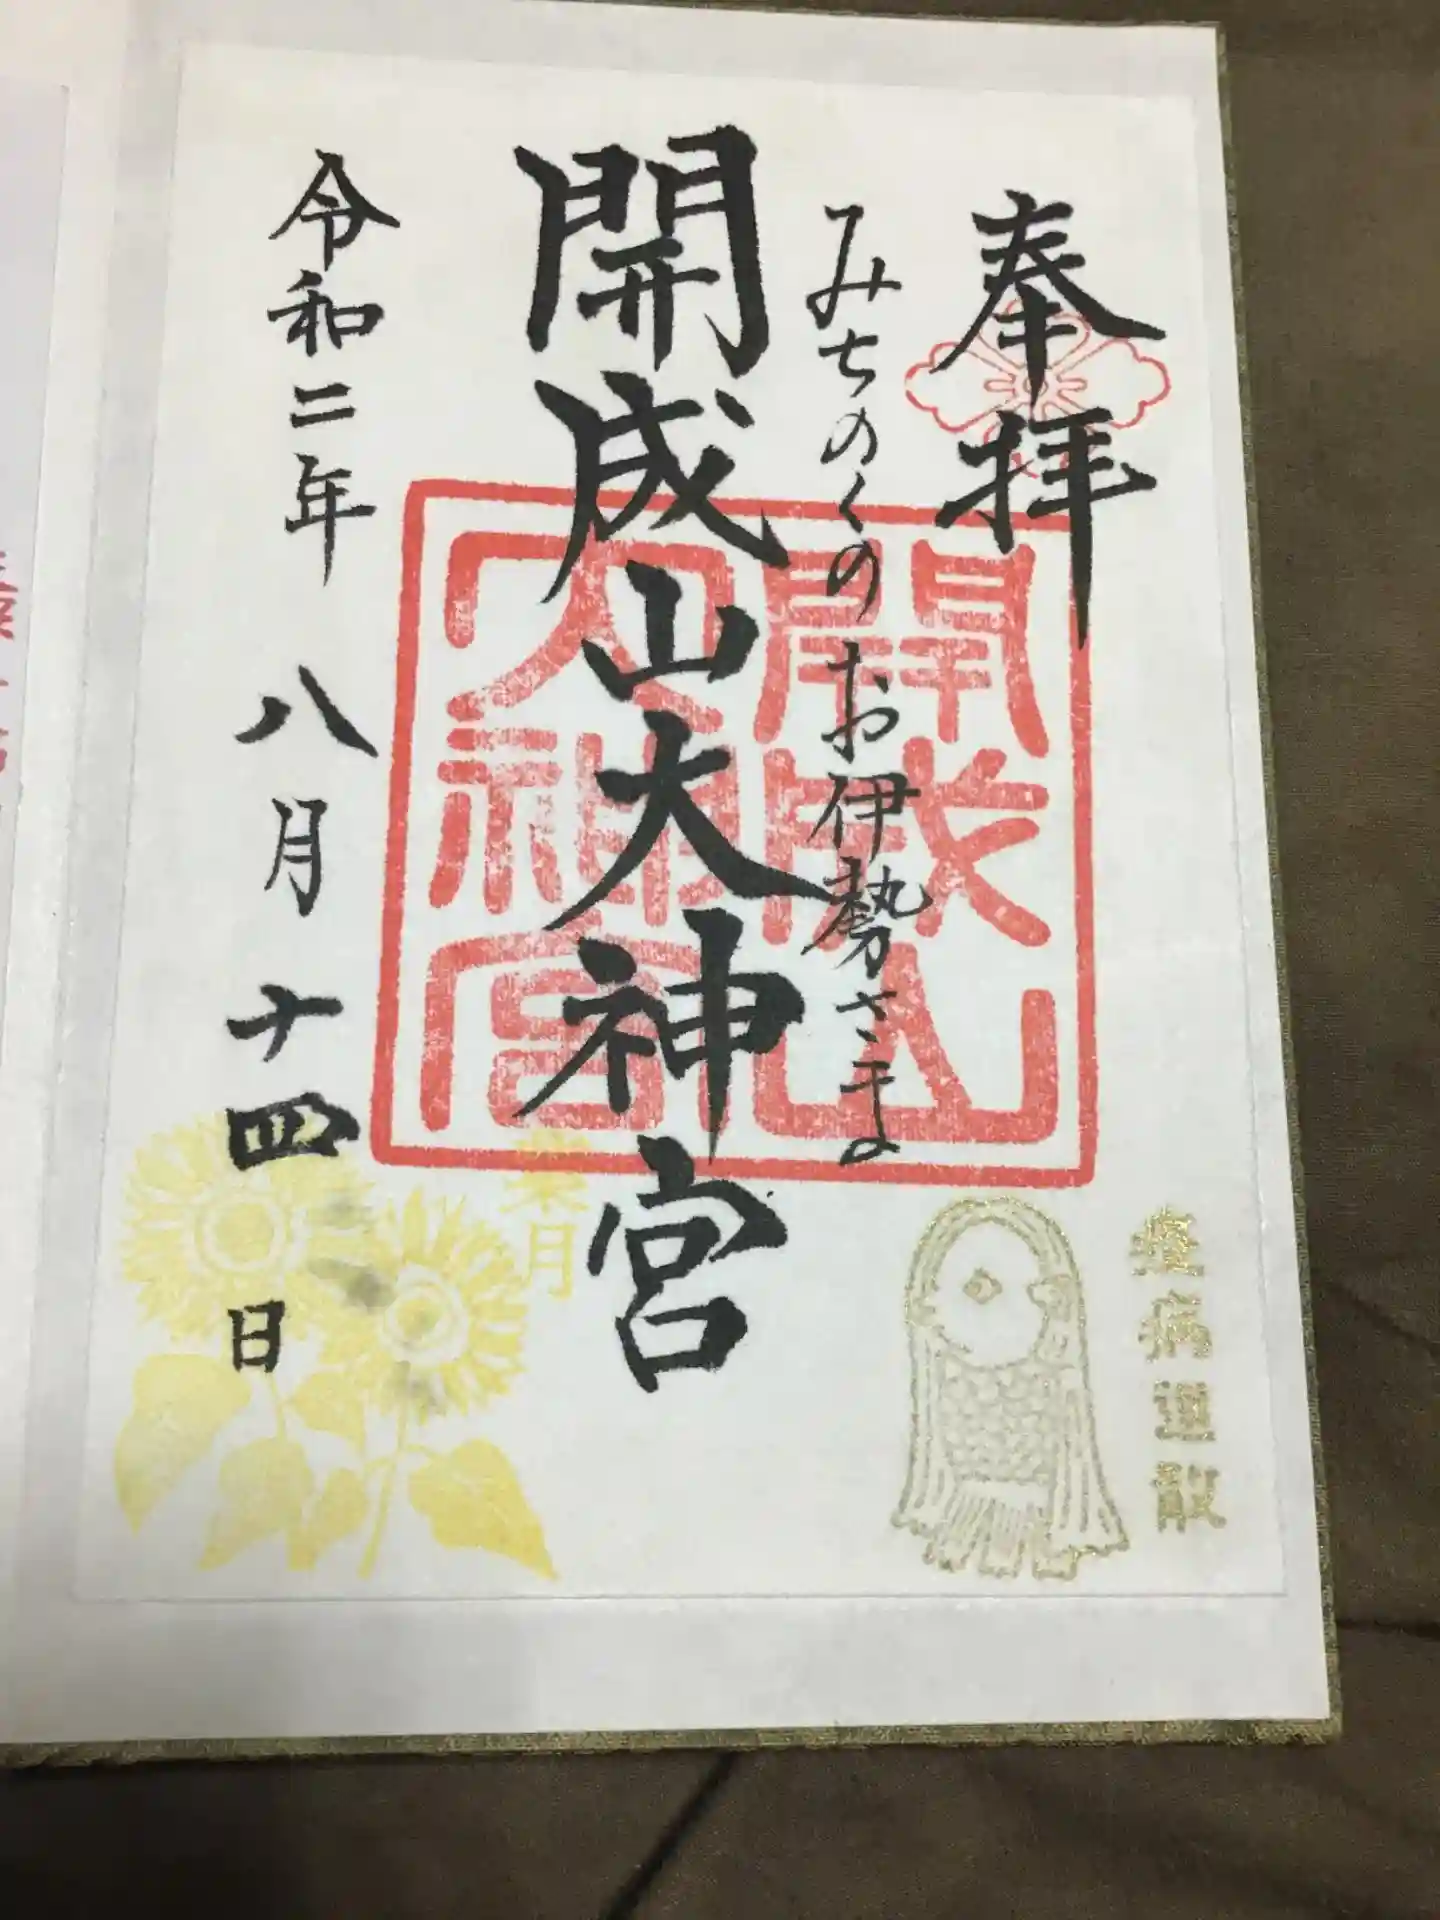 奉拝
みちのくのお伊勢さま
開成山大神宮
令和二年 八月 十四日
開成山
大神宮
葉月
疫病退散